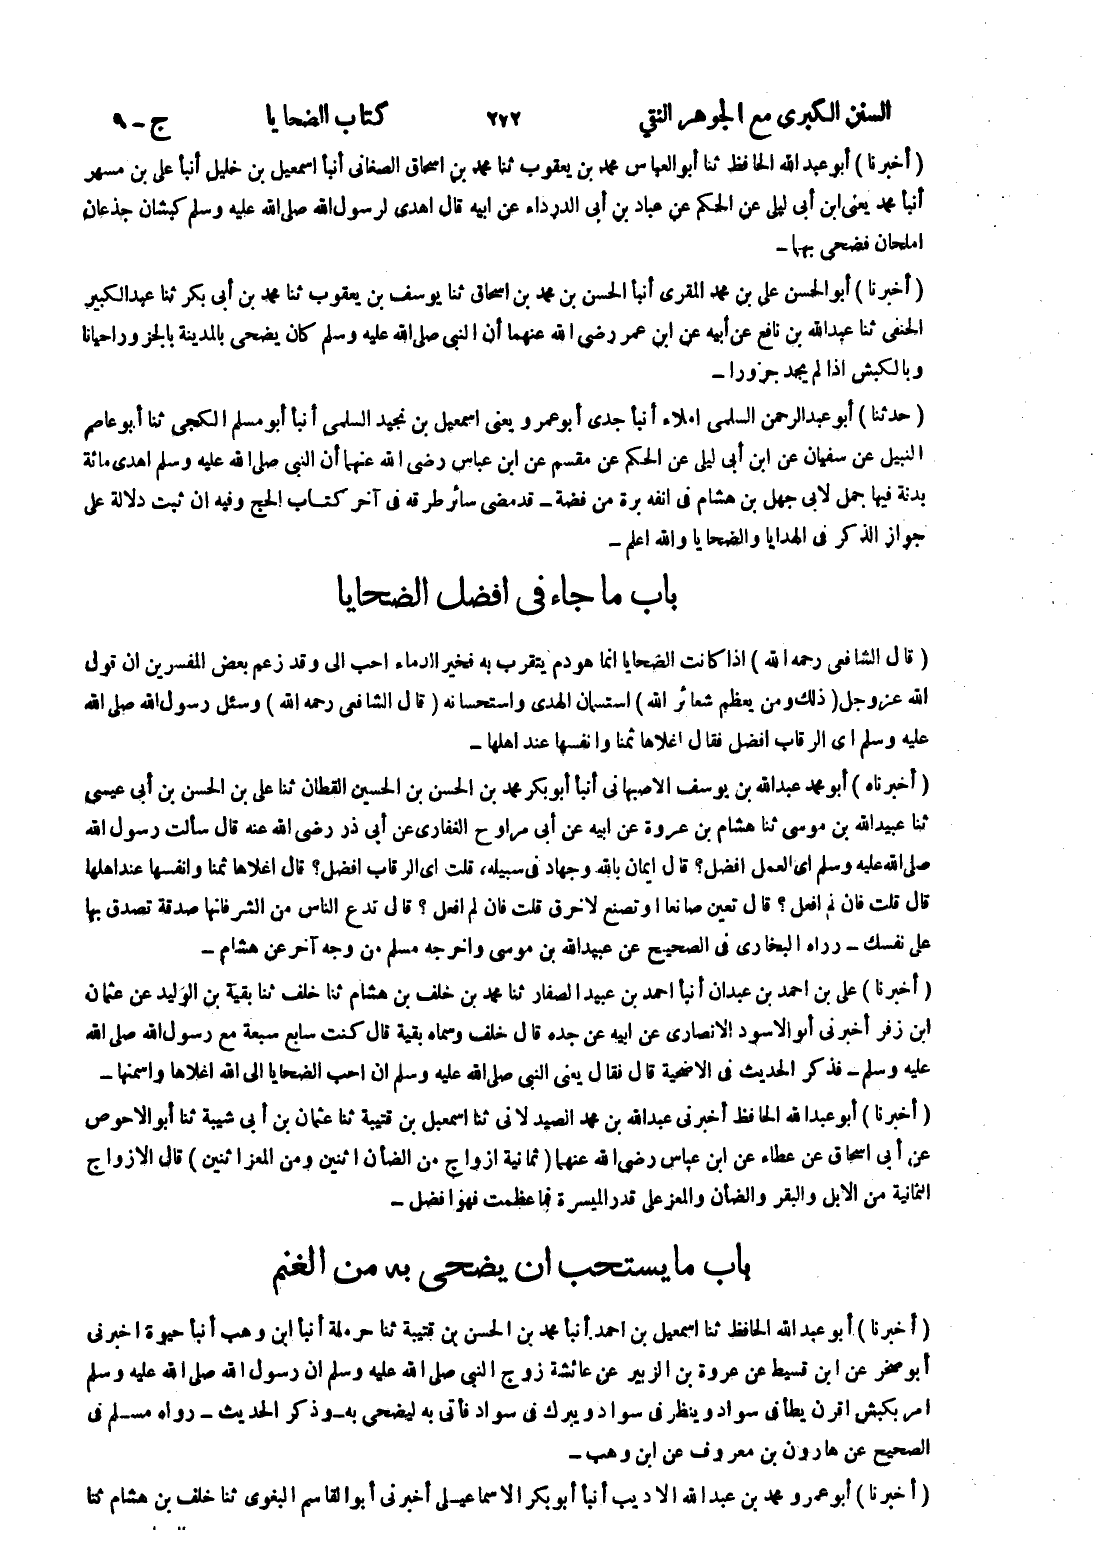 السنن الكبرى مع الجوهر النقي ٢٧٢ كتاب الضحايا ج - ٩
( أخبرنا ) أبو عبد الله الحافظ ثنا أبو العباس محمد بن يعقوب ثنا محمد بن اسحاق الصغانى أنبأ اسمعيل بن خليل أنبأ على بن مسهر
أنبأ محمد يعنى ابن أبى ليلى عن الحكم عن عباد بن أبى الدرداء عن ابيه قال اهدى لرسول الله صلى الله عليه وسلم كبشان جذعان
املحان فضحى بهما -
( أخبرنا ) أبو الحسن على بن محمد المقرى أنبأ الحسن بن محمد بن اسحاق ثنا يوسف بن يعقوب ثنا محمد بن أبى بكر ثنا عبد الكبير
الحنفى ثنا عبد الله بن نافع عن أبيه عن ابن عمر رضى الله عنهما أن النبى صلى الله عليه وسلم كان يضحى بالمدينة بالجزور احيانا
وبالكبش اذا لم يجد جزورا -
( حدثنا ) أبو عبد الرحمن السلمى املاء أنبأ جدى أبو عمرو يعنى اسمعيل بن نجيد السلمى أنبأ أبو مسلم الكجى ثنا أبو عاصم
النبيل عن سفيان عن ابن أبى ليلى عن الحكم عن مقسم عن ابن عباس رضى الله عنهما أن النبى صلى الله عليه وسلم اهدى مائة
بدنة فيها جمل لابى جهل بن هشام فى انفه برة من فضة - قد مضى سائر طرقه فى آخر كتاب الحج وفيه ان ثبت دلالة على
جواز الذكر فى الهدايا والضحايا والله اعلم -
باب ما جاء فى افضل الضحايا
( قال الشافعى رحمه الله ) اذا كانت الضحايا انما هو دم يتقرب به فخير الدماء احب الى وقد زعم بعض المفسرين ان قول
الله عز وجل ( ذلك ومن يعظم شعائر الله ) استسمان الهدى واستحسانه ( قال الشافعى رحمه الله ) وسئل رسول الله صلى الله
عليه وسلم اى الرقاب افضل فقال اغلاها ثمنا وانفسها عند اهلها -
( أخبرناه ) أبو محمد عبد الله بن يوسف الاصبهانى أنبأ أبو بكر محمد بن الحسن بن الحسين القطان ثنا على بن الحسن بن أبى عيسى
ثنا عبيد الله بن موسى ثنا هشام بن عروة عن ابيه عن أبى مراوح الغفارى عن أبى ذر رضى الله عنه قال سألت رسول الله
صلى الله عليه وسلم اى العمل افضل؟ قال ايمان بالله وجهاد فى سبيله، قلت اى الرقاب افضل؟ قال اغلاها ثمنا وانفسها عند اهلها
قال قلت فان لم افعل؟ قال تعين صانعا او تصنع لاخرق قلت فان لم افعل؟ قال تدع الناس من الشر فانها صدقة تصدق بها
على نفسك - رواه البخارى فى الصحيح عن عبيد الله بن موسى واخرجه مسلم من وجه آخر عن هشام -
( أخبرنا ) على بن احمد بن عبدان أنبأ احمد بن عبيد الصفار ثنا محمد بن خلف بن هشام ثنا خلف ثنا بقية بن الوليد عن عثمان
ابن زفر أخبرنى أبو الاسود الانصارى عن ابيه عن جده قال خلف وسماه بقية قال كنت سابع سبعة مع رسول الله صلى الله
عليه وسلم - فذكر الحديث فى الاضحية قال فقال يعنى النبى صلى الله عليه وسلم ان احب الضحايا الى الله اغلاها واسمنها -
( أخبرنا ) أبو عبد الله الحافظ أخبرنى عبد الله بن محمد الصيدلانى ثنا اسمعيل بن قتيبة ثنا عثمان بن أبى شيبة ثنا أبو الاحوص
عن أبى اسحاق عن عطاء عن ابن عباس رضى الله عنهما ( ثمانية ازواج من الضأن اثنين ومن المعز اثنين ) قال الازواج
الثمانية من الابل والبقر والضأن والمعز على قدر الميسرة فما عظمت فهو افضل -
باب ما يستحب ان يضحى به من الغنم
( أخبرنا ) أبو عبد الله الحافظ ثنا اسمعيل بن احمد أنبأ محمد بن الحسن بن قتيبة ثنا حرملة أنبأ ابن وهب أنبأ حيوة اخبرنى
أبو صخر عن ابن قسيط عن عروة بن الزبير عن عائشة زوج النبى صلى الله عليه وسلم ان رسول الله صلى الله عليه وسلم
امر بكبش اقرن يطأ فى سواد وينظر فى سواد ويبرك فى سواد فأتى به ليضحى به - وذكر الحديث - رواه مسلم فى
الصحيح عن هارون بن معروف عن ابن وهب -
( أخبرنا ) أبو عمرو محمد بن عبد الله الاديب أنبأ أبو بكر الاسماعيلى أخبرنى أبو القاسم البغوى ثنا خلف بن هشام ثنا